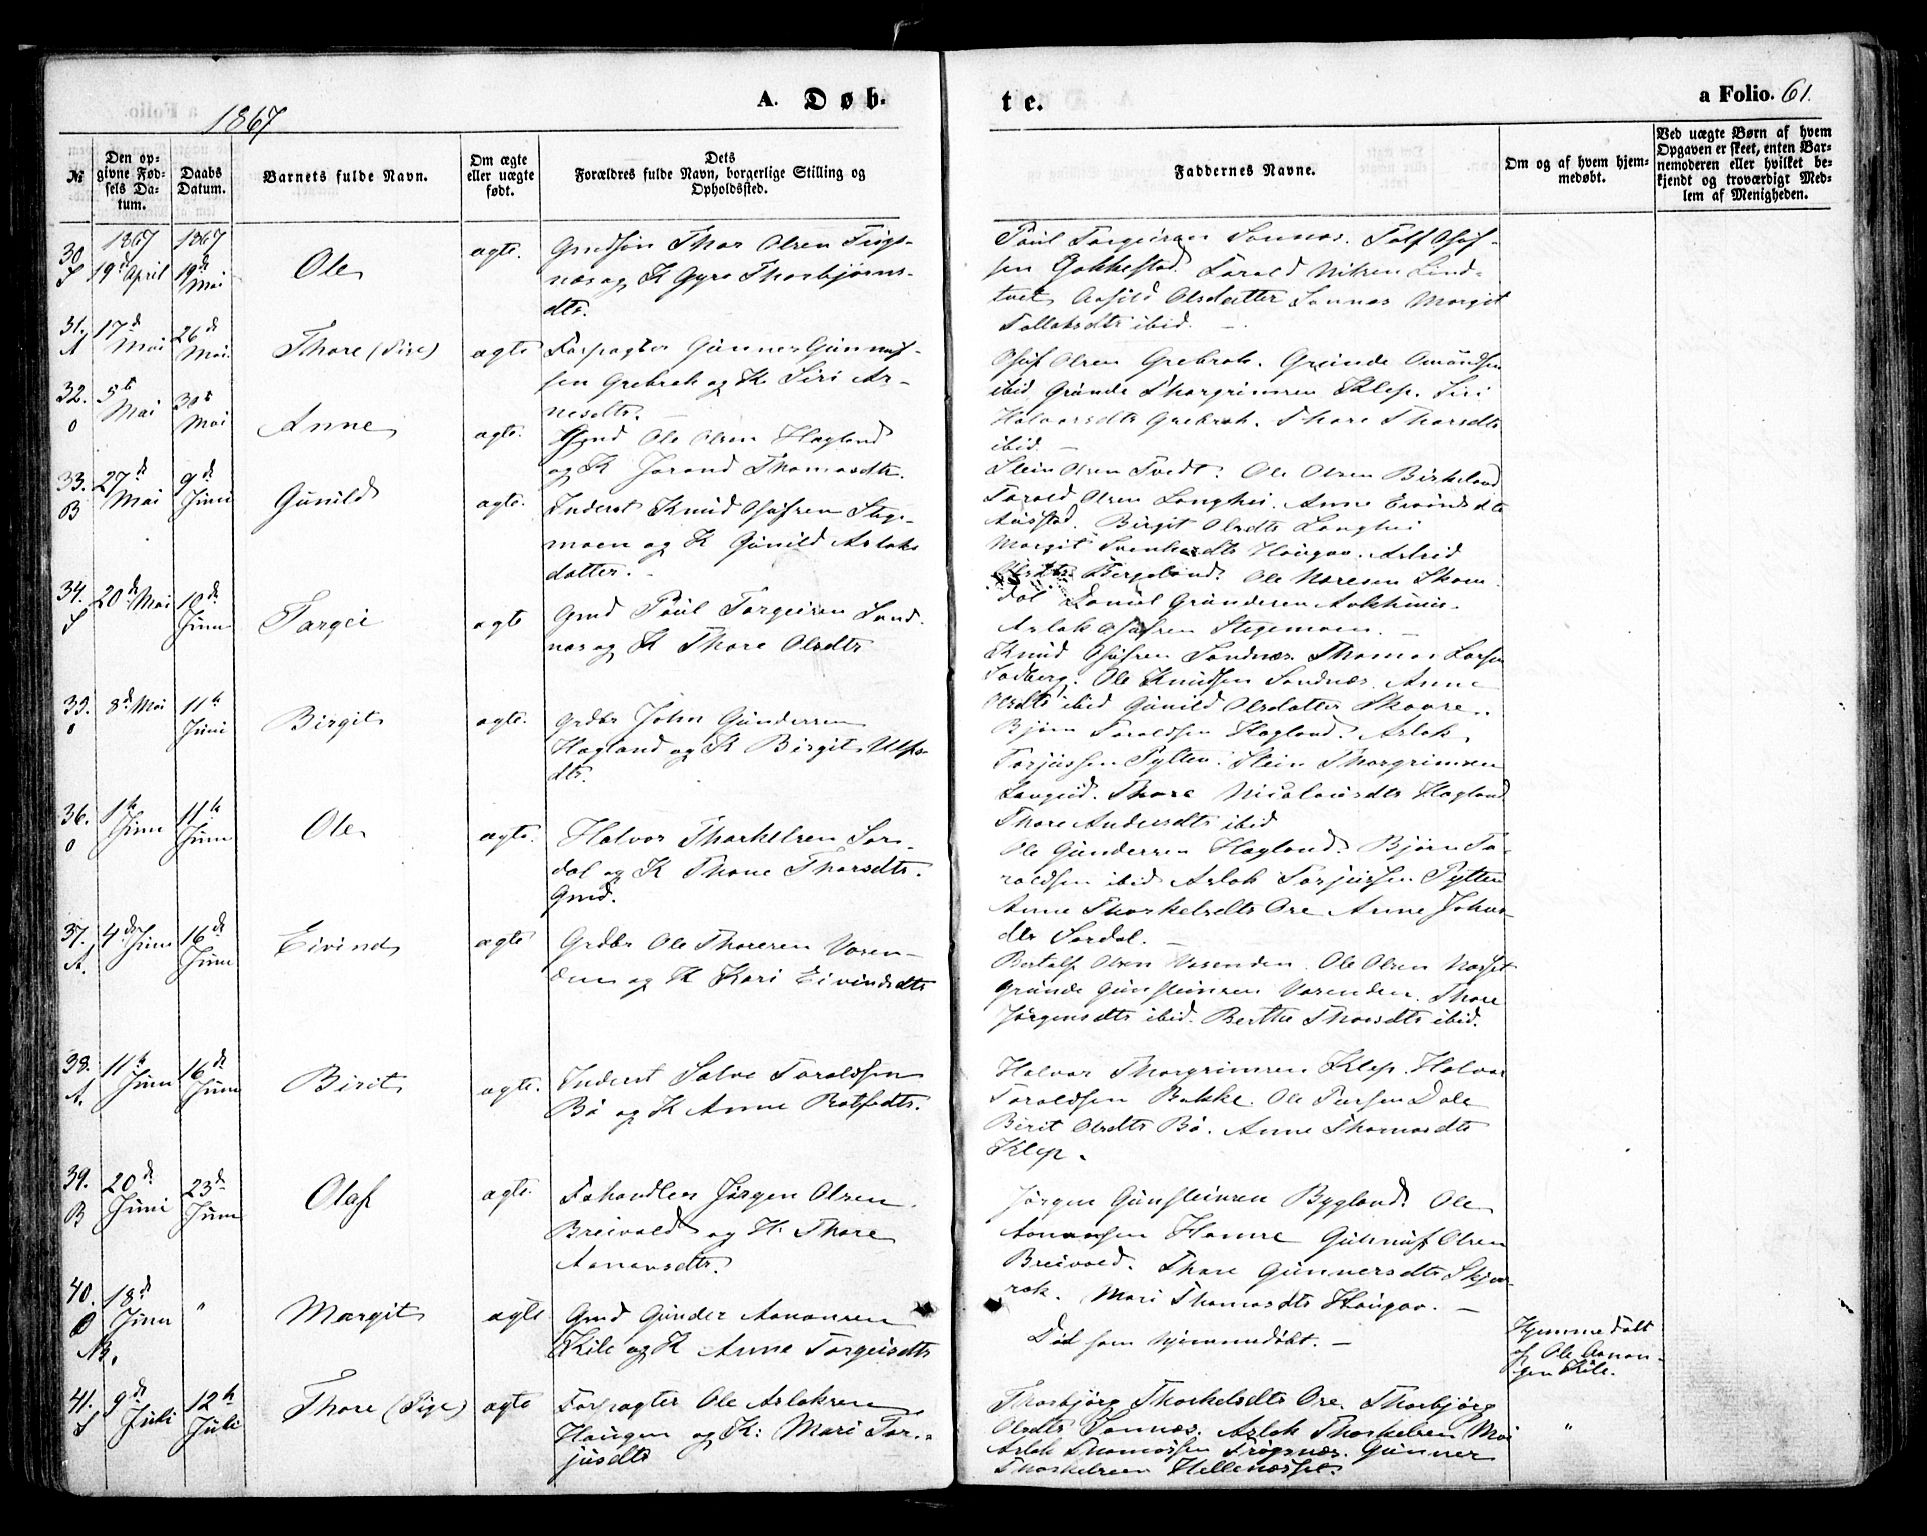 1867
A. Døb-
te.
a Folio. 61.
№
Den op-
givne Fød-
sels Da-
tum.
Daabs
Datum.
Barnets fulde Navn.
Om ægte
eller uægte
født.
Dets
Forældres fulde Navn, borgerlige Stilling og
Opholdssted.
Faddernes Navne.
Om og af hvem hjem-
medøbt.
Ved uægte Børn af hvem
Opgaven er skeet, enten Bar-
nemoderen eller hvilket be-
kjendt og troværdigt Med-
lem af Menigheden.
30.
S
1867
19de April
1867
19de
Mai
Ole
ægte.
Gmdsøn Thor Olsen
næs og K Gyro Thorbjørns-
dtr.
Poul Torgeirsen Sonnæs. Tolf Osuf-
sen Gakkestad. Torald Nilsen Lind-
tveit Aasild Olsdatter Sonnæs Margit
Tallaksdtr ibid. —
31.
A
17de
Mai
26de
Mai.
Thore (Pige)
ægte
Forpagter Gunner Gunnuf-
sen Grebrok og K Siri Ar-
nesdtr. —
Osuf Olsen Grebrok. Gunde Omundsen
ibid Grunde Thorgrimsen Klep. Siri
Halvorsdtr Grebrok. Thore Thorsdtr
ibid. —
32.
O
5te
Mai
30te
Mai
Anne
ægte.
Gmd Ole Olsen Hagland
og K Jorand Thomasdtr.
Stein Olsen Tvedt. Ole Olsen Birkeland
Torald Olsen Langhei. Anne Evindsdtr
Austad. Birgit Olsdtr Langhei
33.
B
27de
Mai
9de
Juni
Gunild
ægte.
Inderst Knud Osufsen Stege-
moen og K Gunild Aslaks
datter. —
Margit Svenkesdtr Haugaa. Astrid
Olsdtr Bergeland. Ole Naresen Skom-
dal Daniel Gundersen
Aslak Osufsen Stegemoen. —
34.
S
20de Mai
10de
Juni
Torgei
ægte
Gmd Poul Torgeirsen Sand-
næs og K Thore Olsdtr
Knud Osufsen Sandnæs. Thomas Larsen
Sadberg. Ole Knudsen Sandnæs. Anne
Olsdtr ibid Gunild Olsdatter Skaare.
35.
O
8de Mai
11te
Juni
Birgit
ægte.
Grdbr John Gundersen
Hagland og K Birgit Ulfs-
dtr.
Bjørn Toraldsen Hagland. Aslak
Torjussen Tylten. Stein Thorgrimsen
Langeid. Thore Nicolaisdtr Hagland
Thore Andersdtr ibid
36.
O
1te
Juni
11te
Juni
Ole
ægte.
Halvor Thorkelsen Sor-
dal og K Thone Thorsdtr.
Gmd.
Ole Gundersen Hagland. Bjørn To-
raldsen ibid Aslak Torjussen Tylten
Anne Thorkelsdtr Ose Anne Johns-
dtr Sordal. —
37.
A.
4de Juni
16de
Juni
Eivind
ægte
Grdbr Ole Thoresen Vasen-
den og K Kari Eivindsdtr
Bertolf Olsen Vasenden. Ole Olsen
Grunde Gunsteinsen Vasenden. Thore
Jørgensdtr ibid. Berthe Thorsdtr ibid.
38.
A.
11te
Juni
16de
Juni
Birit
ægte.
Inderst Salve Toraldsen
Bø og K Anne Rolfsdtr.
Halvor Thorgrimsen Klep. Halvor
Toraldsen Bakke. Ole Tarsen Dale
Birit Olsdtr Bø. Anne Thomasdtr
Klep.
39.
B
20de
Juni
23de
Juni
Olaf
ægte.
Fahandler Jørgen Olsen
Breivold og K. Thore
Aanonsdtr.
Jørgen Gunsteinsen Bygland. Ole
Aanonsen Hamre Gunnuf Olsen
Breivold. Thore Gunnersdtr Skjev-
rok. Mari Thomasdtr Haugaa. —
40.
O
18de
Juni
"
Margit
ægte
Gmd Gunder Aanonsen
Kile og K Anne Torgeisdtr
Død som hjemmedøbt. —
Hjemmedøbt
af Ole Aanon-
sen Kile.
41.
S
9de
Juli
12te
Juli
Thore (Pige)
ægte
Forpagter Ole Aslaksen
Haugen og K: Mari Tor-
jusdtr
Thorbjørg Thorkelsdtr Ose. Thorbjørg
Olsdtr Sonnæs. Aslak Thorkelsen Moi
Aslak Thomassen Frøysnæs. Gunner
Thorkelsen
"